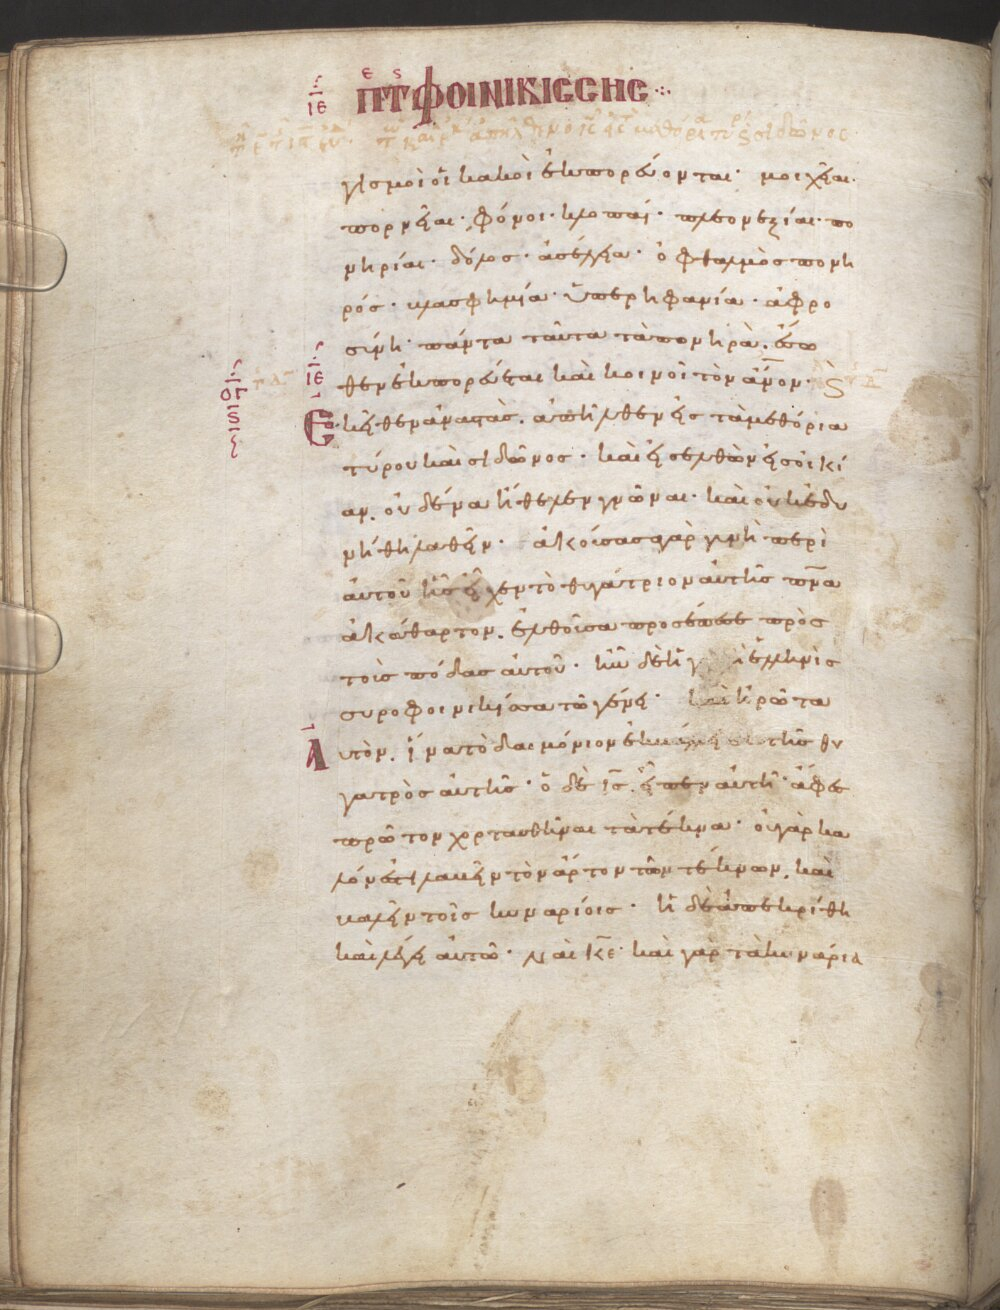 ιε περὶ τῆς ΦΟΙΝΙΚΙΣΣΗΣ
γισμοὶ οἱ κακοὶ ἐκπορεύονται· μοιχεῖαι·
πορνεῖαι· φόνοι· κλοπαί· πλεονεξίαι· πο
νηρίαι· δόλος· ἀσέλγεια· ὀφθαλμὸς πονη
ρός· βλασφημία· ὑπερηφανία· ἀφρο
σύνη· πάντα ταῦτα τὰ πονηρὰ, ἔσω
θεν ἐκπορεύεται καὶ κοινοῖ τὸν ἄνον·
ιε
Ἐκεῖθεν ἀναστὰς, ἀπῆλθεν εἰς τὰ μεθόρια
τύρου καὶ σιδῶνος· καὶ εἰσελθὼν εἰς οἰκί
αν, οὐδένα ἤθελεν γνῶναι· καὶ οὐκ ἐδυ
νήθη λαθεῖν· ἀκούσασα γὰρ γυνὴ περὶ
αὐτοῦ ἧς εἶχεν τὸ θυγάτριον αὐτῆς πνα
ἀκάθαρτον, ἐλθοῦσα προσέπεσε πρὸς
τοὺς πόδας αὐτοῦ· ἦν δὲ ἡ ἑλληνὶς
συροφοινίκισσα τῶ γένει· καὶ ἠρώτα
Αὐτὸν, ἵνα τὸ δαιμόνιον ἐκ τῆς θυ
γατρὸς αὐτῆς· ὁ δὲ ις, εἶπεν αὐτῆ· ἄφες
πρῶτον χορτασθῆναι τὰ τέκνα· οὐ γὰρ κα
λόν ἐστι λαβεῖν τὸν ἄρτον τῶν τέκνων, καὶ
βαλεῖν τοῖς κυναρίοις· ἡ δὲ ἀπεκρίθη
καὶ λέγει αὐτῶ· ναὶ κε· καὶ γὰρ τὰ κυνάρια